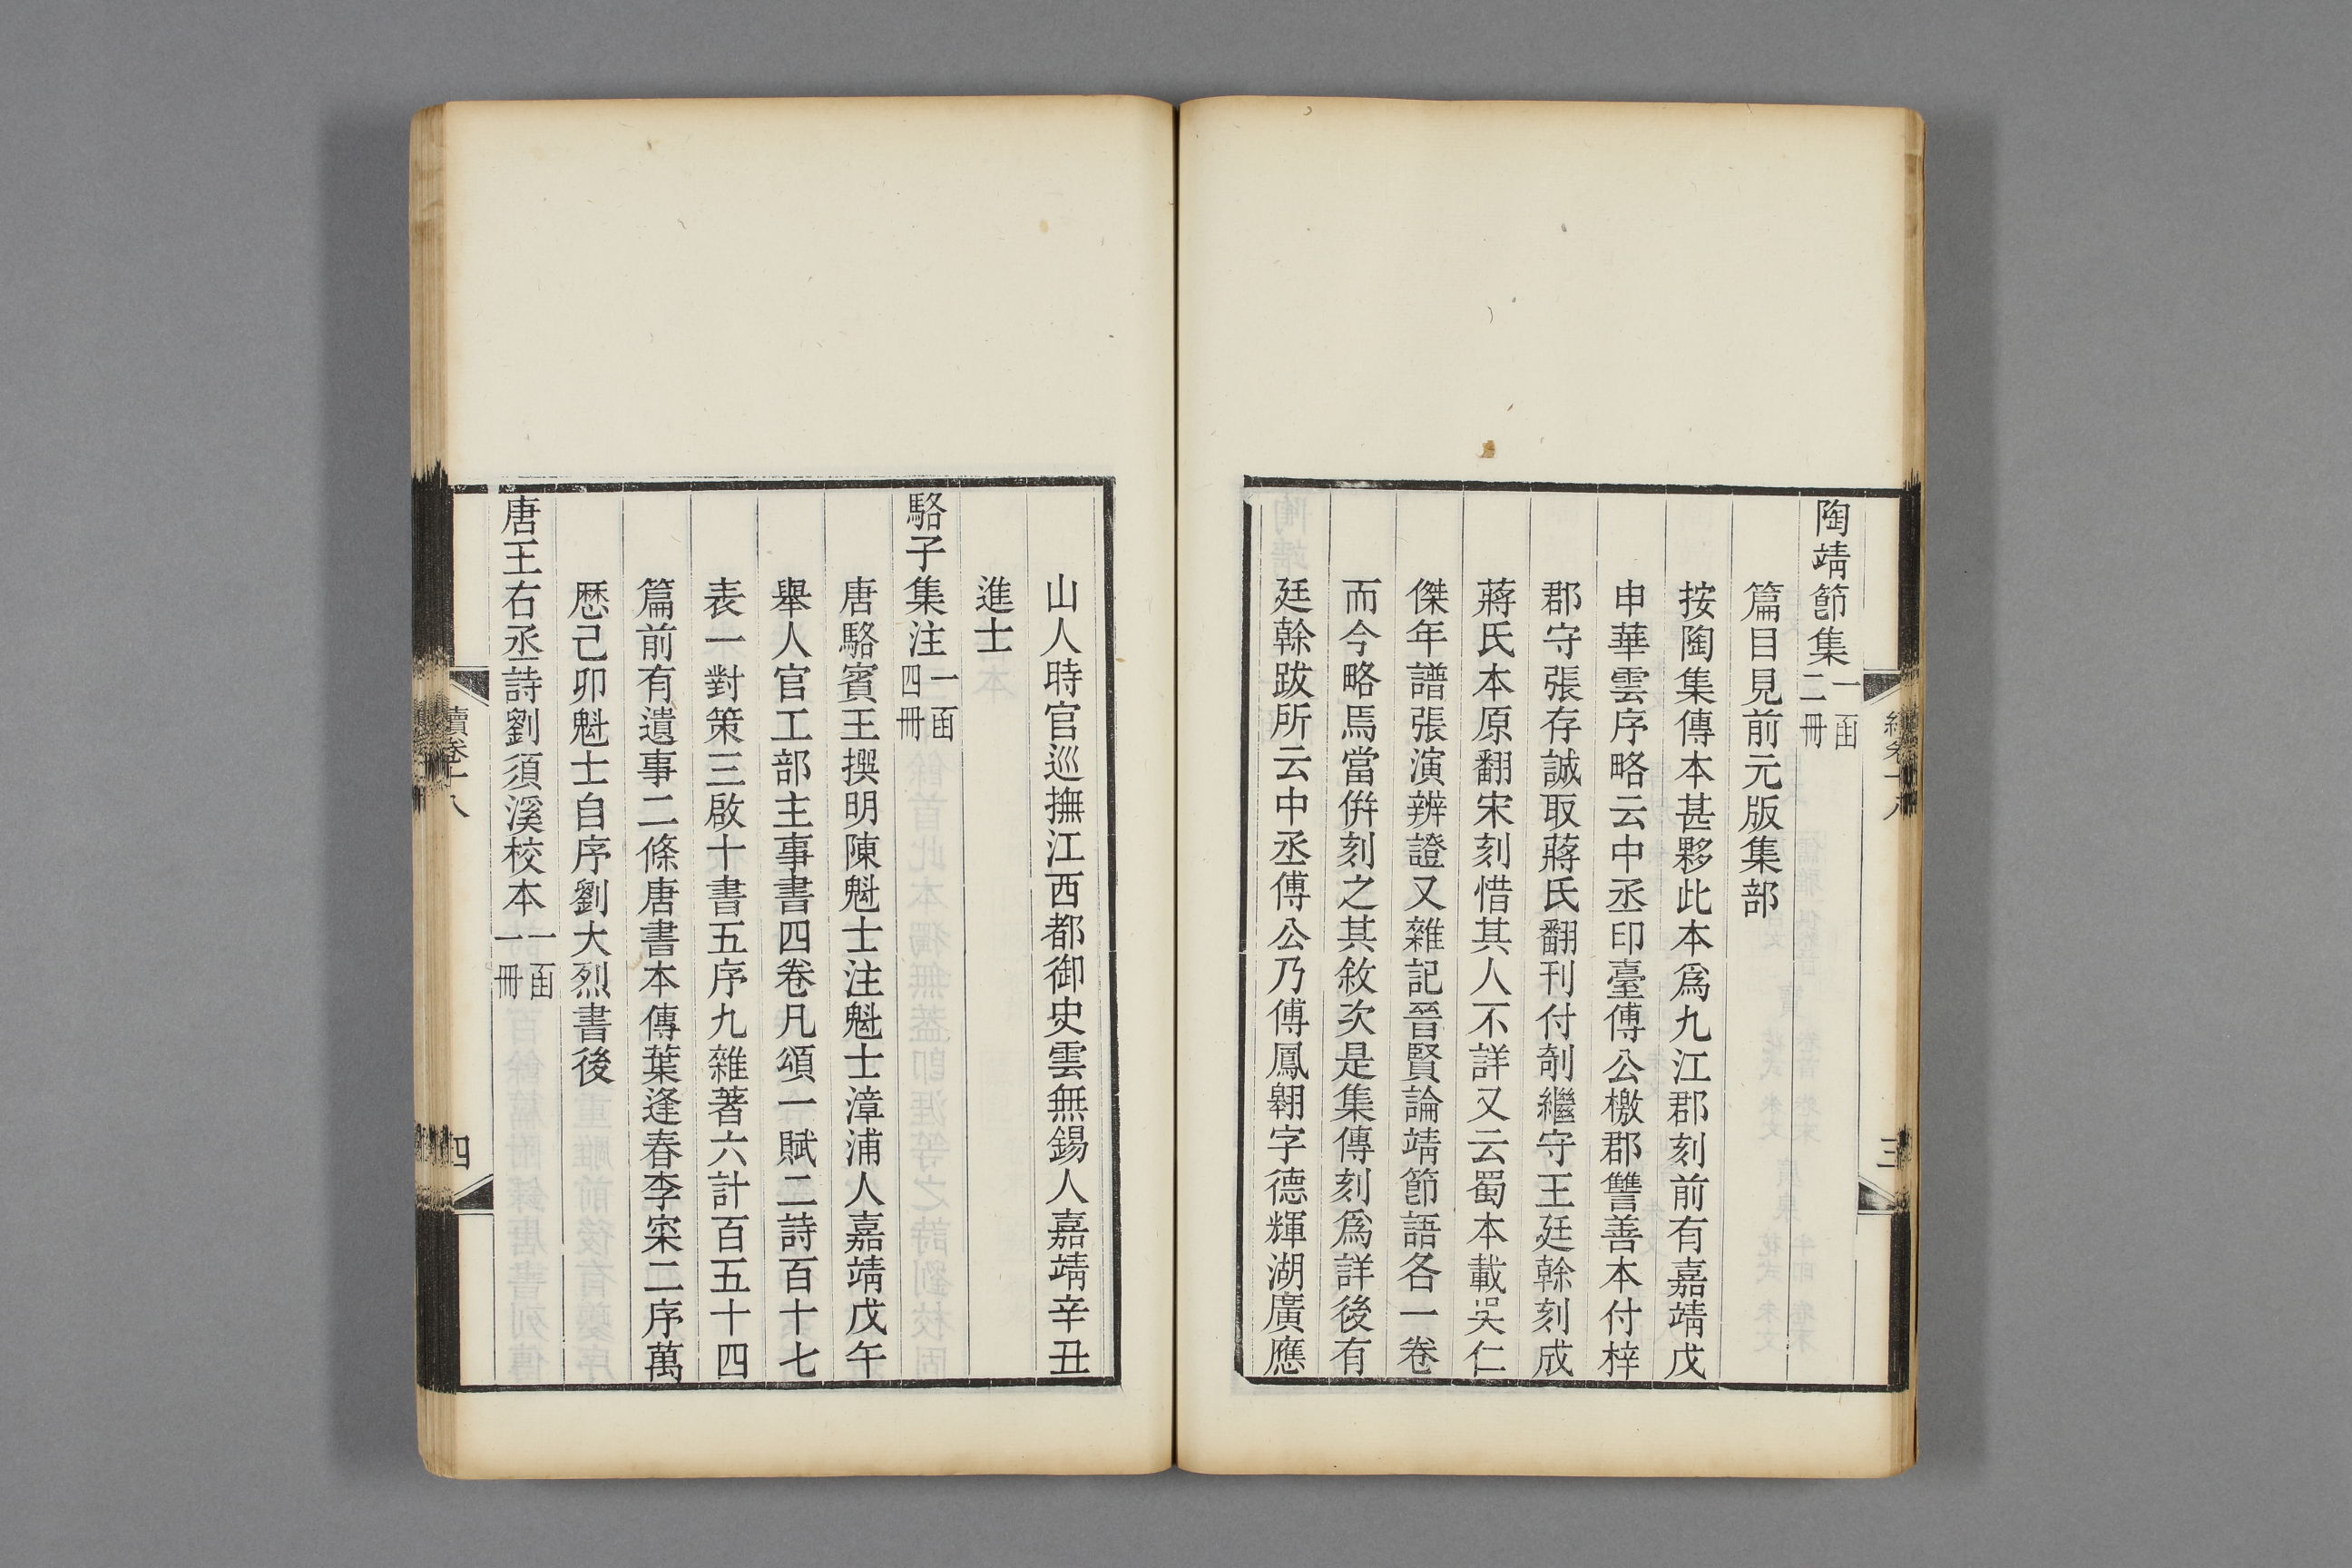 陶靖節集一函二冊
篇目見前元版集部
按陶集傳本甚夥此本爲九江郡刻前有嘉靖戊
申華雲序略云中丞印臺傅公檄郡讐善本付梓
郡守張存誠取蔣氏翻刊付剞繼守王廷榦刻成
蔣氏本原翻宋刻惜其人不詳又云蜀本載吳仁
傑年譜張演辨證又雜記晉賢論靖節語各一卷
而今略焉當倂刻之其敘次是集傳刻爲詳後有
廷榦跋所云中丞傅公乃傅鳳翱字德輝湖廣應
三
山人時官巡撫江西都御史雲無錫人嘉靖辛丑
進士
駱子集注一函四冊
唐駱賓王撰明陳魁士注魁士漳浦人嘉靖戊午
舉人官工部主事書四卷凡頌一賦二詩百十七
表一對策三啟十書五序九雜著六計百五十四
篇前有遺事二條唐書本傳葉逢春李寀二序萬
厯己卯魁士自序劉大烈書後
唐王右丞詩劉須溪校本一函一冊
續卷十八
四